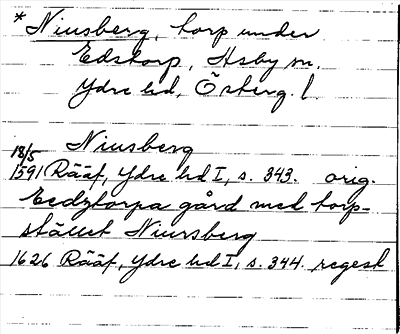 *Niusberg, torp under
Edstorp, Asby sn.
Ydre hd, Österg. l.
Niusberg
18/5
1591 Rääf, Ydre hd I, s. 343. orig.
Eedztorpa gård med torp-
stället Niursberg
1626 Rääf, Ydre hd I, s. 344. regest